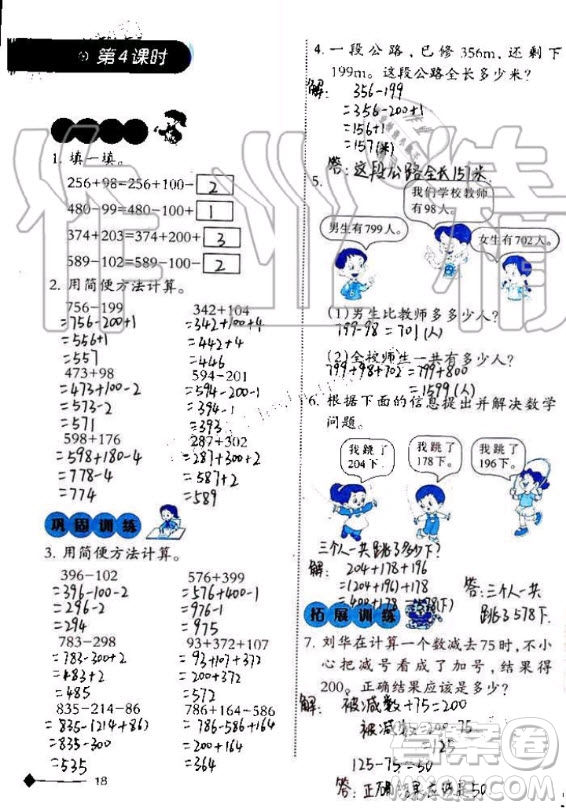 第4课时
1. 填一填。
256+98=256+100- 2
480-99=480-100+ 1
374+203=374+200+ 3
589-102=589-100- 2
2. 用简便方法计算。
756-199 342+104
=756-200+1 =342+100+4
=556+1 =442+4
=557 =446
473+98 594-201
=473+100-2 =594-200-1
=573-2 =394-1
=571 =393
598+176 287+302
=598+180-4 =287+300+2
=778-4 =587+2
=774 =589
巩固训练
3. 用简便方法计算。
396-102 576+399
=396-100-2 =576+400-1
=296-2 =976-1
=294 =975
783-298 93+372+107
=783-300+2 =93+107+372
=483+2 =200+372
=485 =572
835-214-86 786+164-586
=835-(214+86) =786-586+164
=835-300 =200+164
=535 =364
18
4. 一段公路，已修 356m，还剩下
199m。这段公路全长多少米？
解： 356-199
=356-200+1
=156+1
=157(米)
答：这段公路全长157米
5.
我们学校教师
有98人。
男生有799人。
女生有702人。
(1)男生比教师多多少人？
799-98=701(人)
(2)全校师生一共有多少人？
799+98+702=799+800
=1599(人)
6. 根据下面的信息提出并解决数学
问题。
我跳了
204下。
我跳了
178下。
我跳了
196下。
三个人一共跳了多少下？
解： 204+178+196
=204+196+178
=400+178
=578(下)
答：三个人一共
跳了578下.
拓展训练
7. 刘华在计算一个数减去75时，不小
心把减号看成了加号，结果得
200。正确结果应该是多少？
解： 被减数+75=200
被减数=200-75
=125
125-75=50
答：正确结果应该是50
作业精
答案